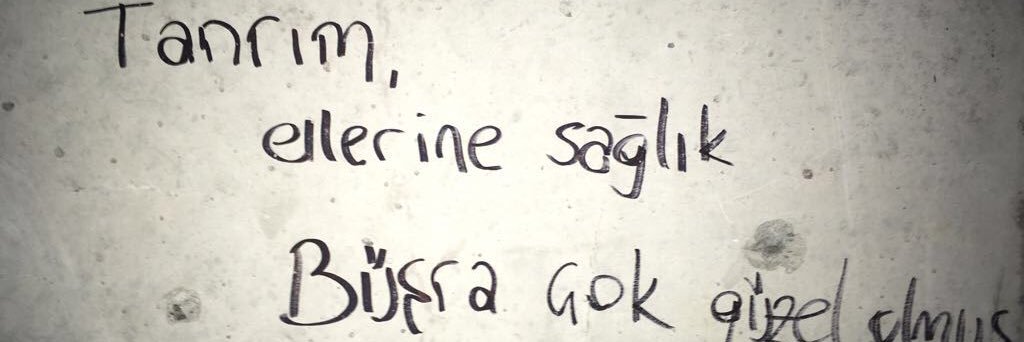 Tanrım,
ellerine sağlık
Büşra çok güzel olmuş